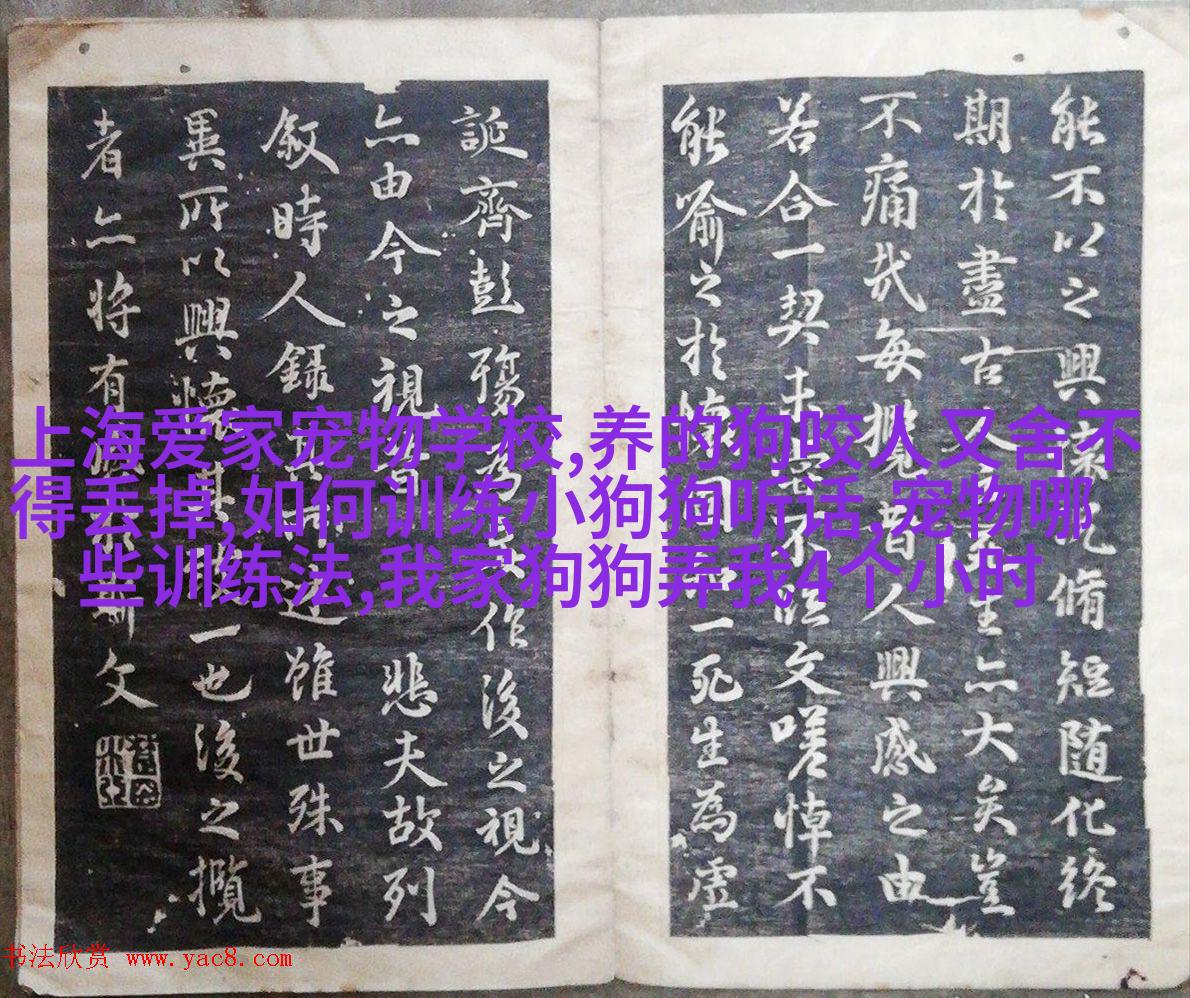 能不以之興懷况脩短随化終
期於盡古人云死生亦大矣豈
不痛哉每攬昔人興感之由
若合一契未嘗不臨文嗟悼不
能喻之於懷固知一死生為虛
誕齊彭殤為妄作後之視今
亦由今之視昔悲夫故列
敘時人錄其所述雖世殊事
異所以興懷其致一也後之攬
者亦將有感於斯文
上海爱家宠物学校,养的狗咬人又舍不
得丢掉,如何训练小狗狗听话,宠物哪
些训练法,我家狗狗弄我4个小时
书法欣赏 www.yac8.com